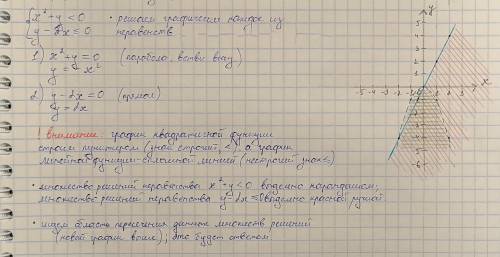 {x² + y < 0 • решаем графически каждое из
{y - 2x ≤ 0 неравенств
1) x² + y = 0 (парабола, ветви вниз)
y = -x²
2) y - 2x = 0 (прямая)
y = 2x
! Внимание: график квадратичной функции
строим пунктиром (знак строгий, <), а график
линейной функции - сплошной линией (нестрогий знак ≤)
• множество решений неравенства x² + y < 0 выделено карандашом;
множество решений неравенства y - 2x ≤ 0 выделено красной ручкой.
• ищем область пересечения данных множеств решений
(новой график выше); это будет ответом.
y
x
5
4
3
2
1
-5 -4 -3 -2 -1